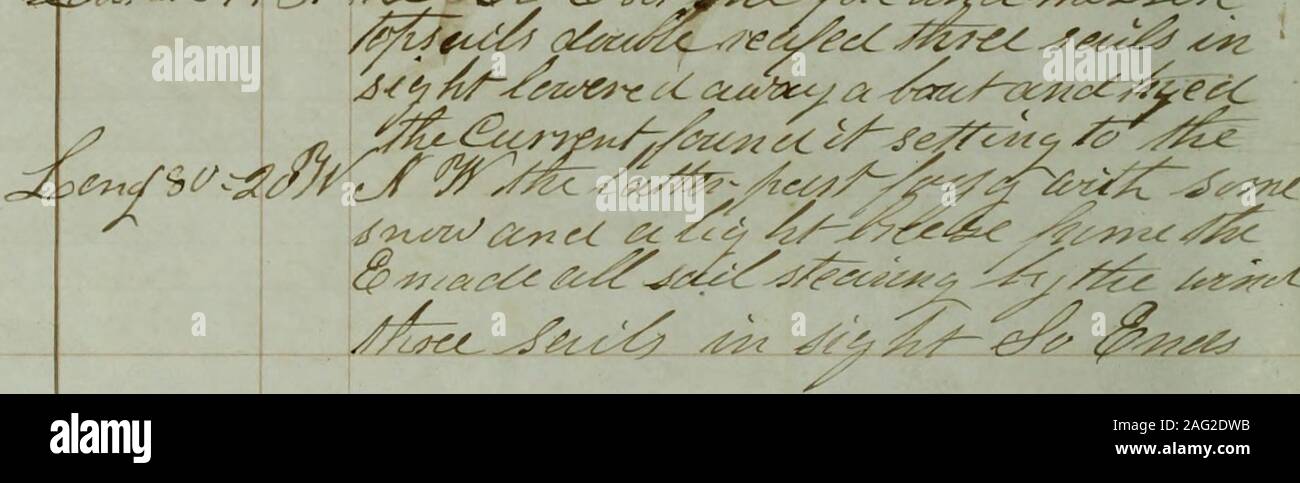 topsails double reafed three sails in
sight lowered away a boat and tryed
the Current found it setting to the
Long 80=20 W N W the latter part foggy with some
snow and a light breeze fume the
E made all sail steairing by the wind
three Sails in sight So Ends
alamy
alamy
a
a
a
a
alamy
Image ID: 2AG2DWB
www.alamy.com